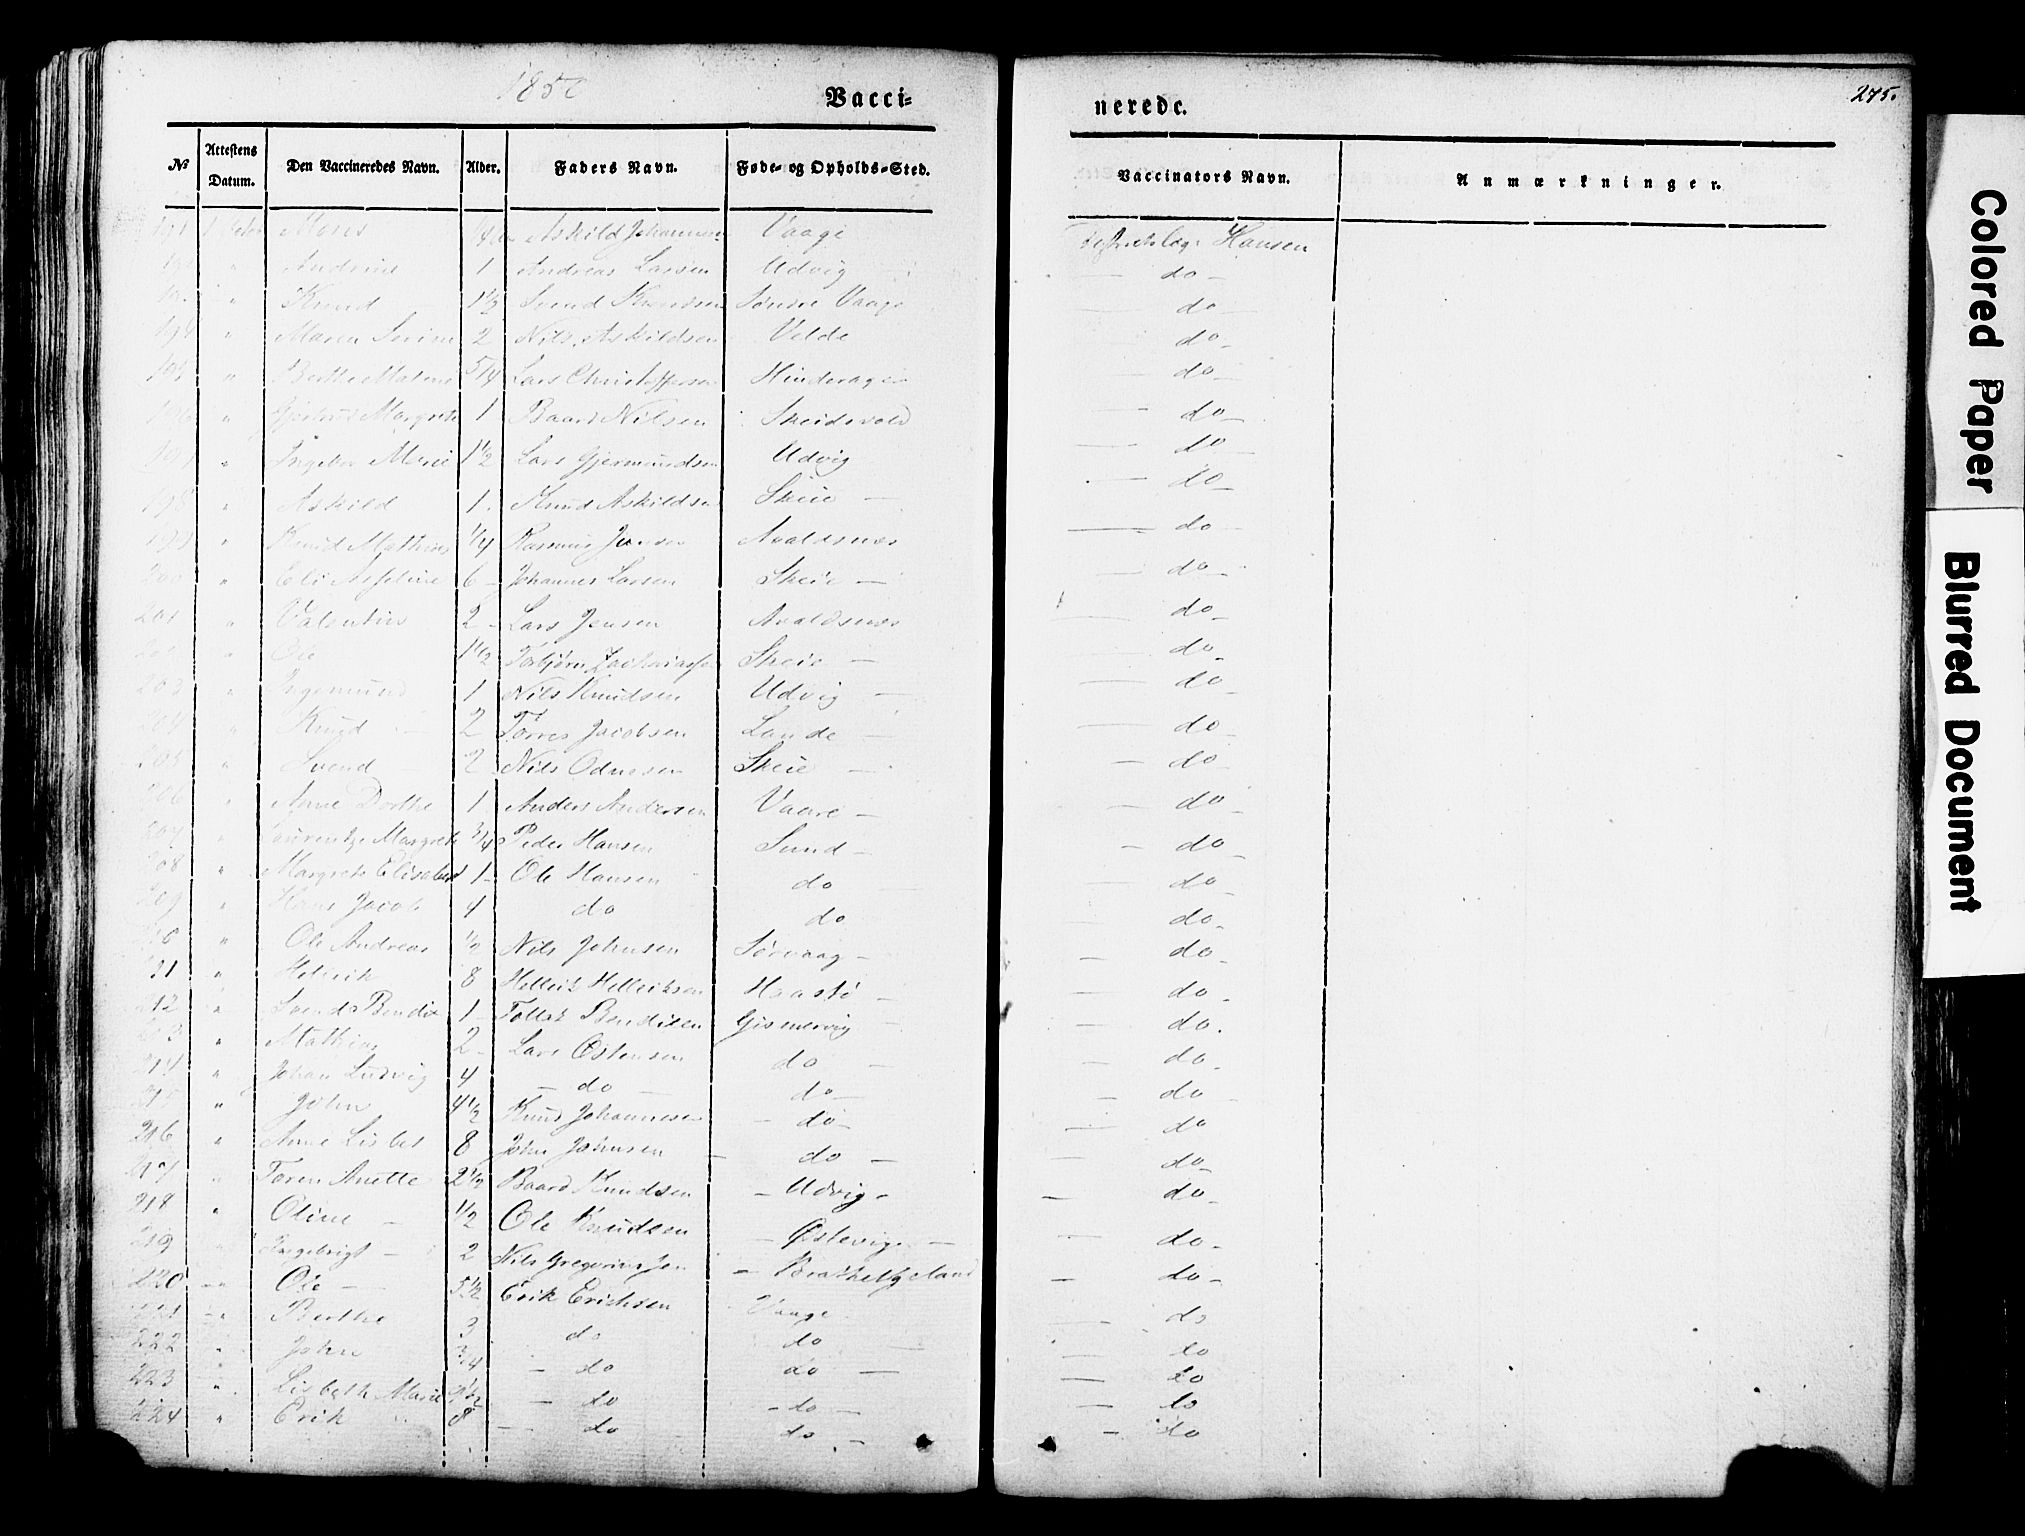 185
Vacci-
nerede.
275.
No Attestens Datum. Den Vaccineredes Navn. Alder. Faders Navn. Føde- og Opholds-Sted. Vaccinators Navn. Anmærkninger.
191 Moses Askild Johannesen Vaage Hansen
" Andrine 1 Andreas Larsen Udvig do
" Knud 1 1/2 Svend Knudsen Søndre Vaage do
194 " Maren Serine 2 Nils Askildsen Velde do
195 " Berthe Malene 5/4 Lars Christophersen Hinderager do
" Margrete 1 Baard Nilsen Skeidsvold do
197 " Ingebor Marie 1 1/2 Lars Gjermundsen Udvig do
198 " Askild 1 Knud Askildsen Skeie do
199 " Knud Mathias 1/4 Rasmus Jensen Avaldsnæs do
200 " Eli 6 Johannes Larsen Skeie do
201 " Valentin 2 Lars Jensen Avaldsnæs do
202 " Ole 1 1/2 Torbjørn Zachariassen Skeie do
203 " Ingemund 1 Nils Knudsen Udvig do
204 " Knud 2 Torres Jacobsen Lande do
205 " Svend 2 Nils Odnesen Skeie do
206 " Anne Dorthe 1 Anders Andersen Vaare do
207 " Margrete 3/4 Peder Hansen Sund do
208 " Margrete Elisabet 1 Ole Hansen do do
209 " Hans Jacob 4 do do do
210 " Ole Andreas 1/2 Nils Johnsen Sørvaag do
211 " Hellerik 8 Hellerik Helleriksen Haastø do
212 " Svend Bendix 1 Tollak Bendixen Gismervig do
213 " Mathias 2 Lars Østensen do do
214 " Johan Ludvig 4 do do do
215 " John 4 1/2 Knud Johannesen do do
216 " Anne Lisbet 8 John Johnsen do do
217 " Toren Anette 2 1/2 Baard Knudsen Udvig do
218 " Oline 1/2 Ole Knudsen Østevig do
219 " Ingebrigt 2 Nils Gregoriussen do
220 " Ole 5 1/2 Erik Erichsen Vaage do
221 " Berthe 3 do do do
222 " John 3/4 do do do
223 " Lisbeth Marie do do do
224 " Erik 8 do do do
Colored Paper
Blurred Document